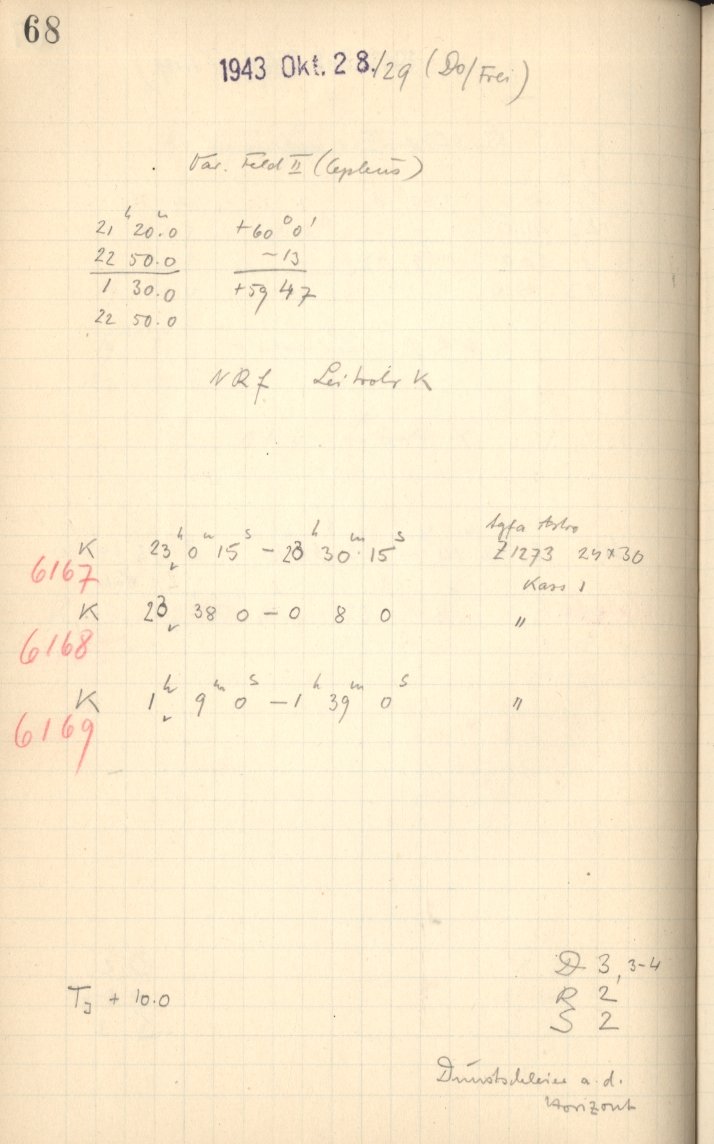 68
1943 Okt. 28./29 (Do/Frei)
Var. Feld II (Cepheus)
21 h 20 m .0 +60 ° 0 '
22 50.0 -13
1 30.0 +59 47
22 50.0
NRf Leitrohr K
Agfa Astro
K 23 h 0 m 15 s - 23 h 30 m 15 s Z1273 24x30
6167
Kass 1
K 23 38 0 - 0 8 0 "
6168
K 1 h 9 m 0 s - 1 h 39 m 0 s "
6169
D 3, 3-4
TJ + 10.0
R 2
S 2
Dunstschleier a. d.
Horizont